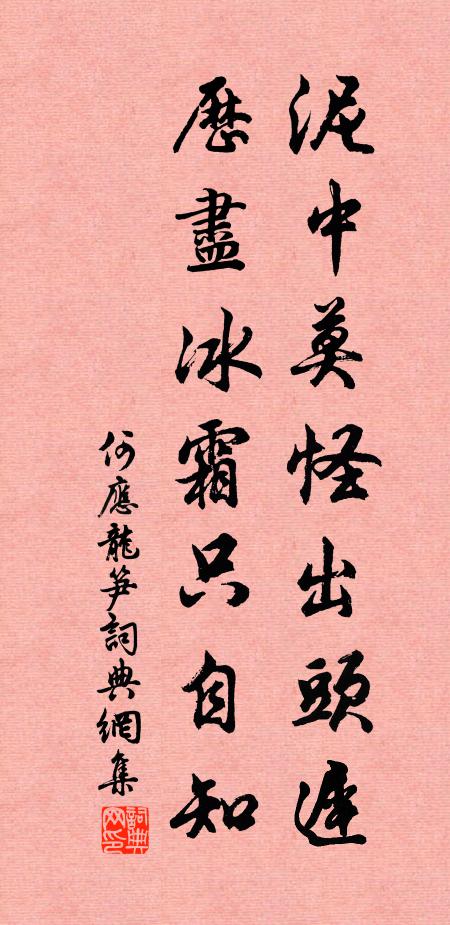 泥中莫怪出頭遲
歷盡冰霜只自知
何應龍笋詞典網集
詞典网印